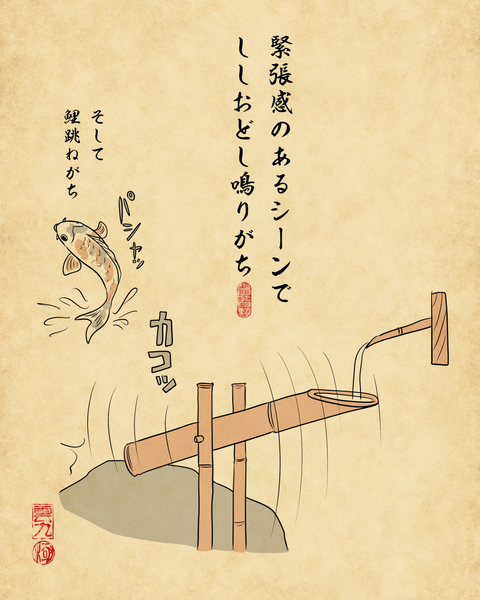 緊張感のあるシーンで
ししおどし鳴りがち
そして
鯉跳ねがち
パシャッ
カコッ